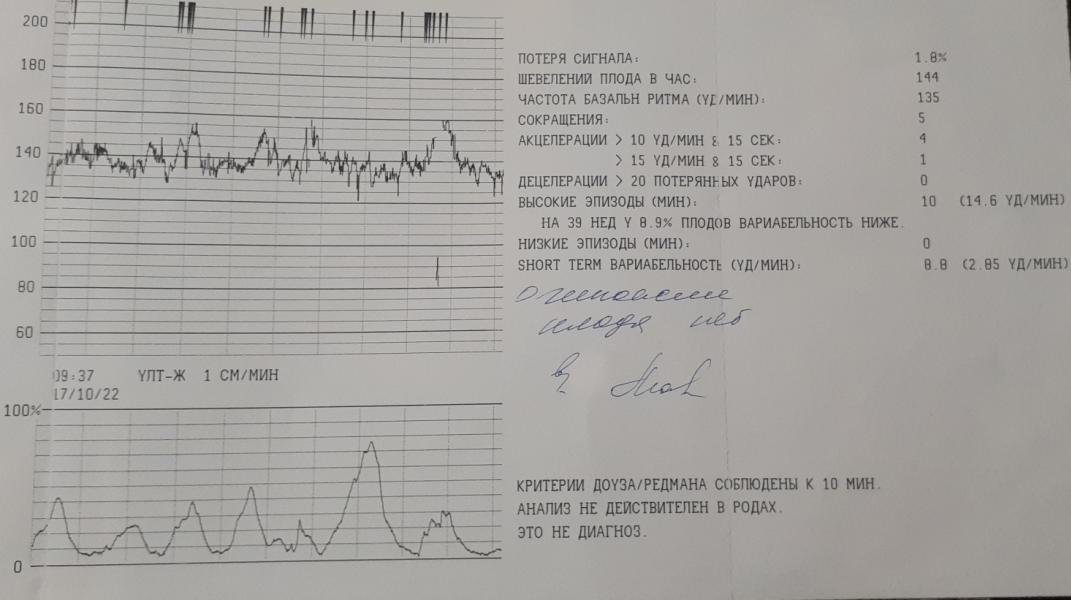 200
180
160
140
120
100
80
60
09:37 УЛТ-Ж 1 СМ/МИН
17/10/22
100%
0
ПОТЕРЯ СИГНАЛА: 1.8%
ШЕВЕЛЕНИЙ ПЛОДА В ЧАС: 144
ЧАСТОТА БАЗАЛЬН РИТМА (УД/МИН): 135
СОКРАЩЕНИЯ: 5
АКЦЕЛЕРАЦИИ > 10 УД/МИН & 15 СЕК: 4
> 15 УД/МИН & 15 СЕК: 1
ДЕЦЕЛЕРАЦИИ > 20 ПОТЕРЯННЫХ УДАРОВ: 0
ВЫСОКИЕ ЭПИЗОДЫ (МИН): 10 (14.6 УД/МИН)
НА 39 НЕД У 8.9% ПЛОДОВ ВАРИАБЕЛЬНОСТЬ НИЖЕ.
НИЗКИЕ ЭПИЗОДЫ (МИН): 0
SHORT TERM ВАРИАБЕЛЬНОСТЬ (УД/МИН): 8.8 (2.85 УД/МИН)
плода нет
КРИТЕРИИ ДОУЗА/РЕДМАНА СОБЛЮДЕНЫ К 10 МИН.
АНАЛИЗ НЕ ДЕЙСТВИТЕЛЕН В РОДАХ.
ЭТО НЕ ДИАГНОЗ.